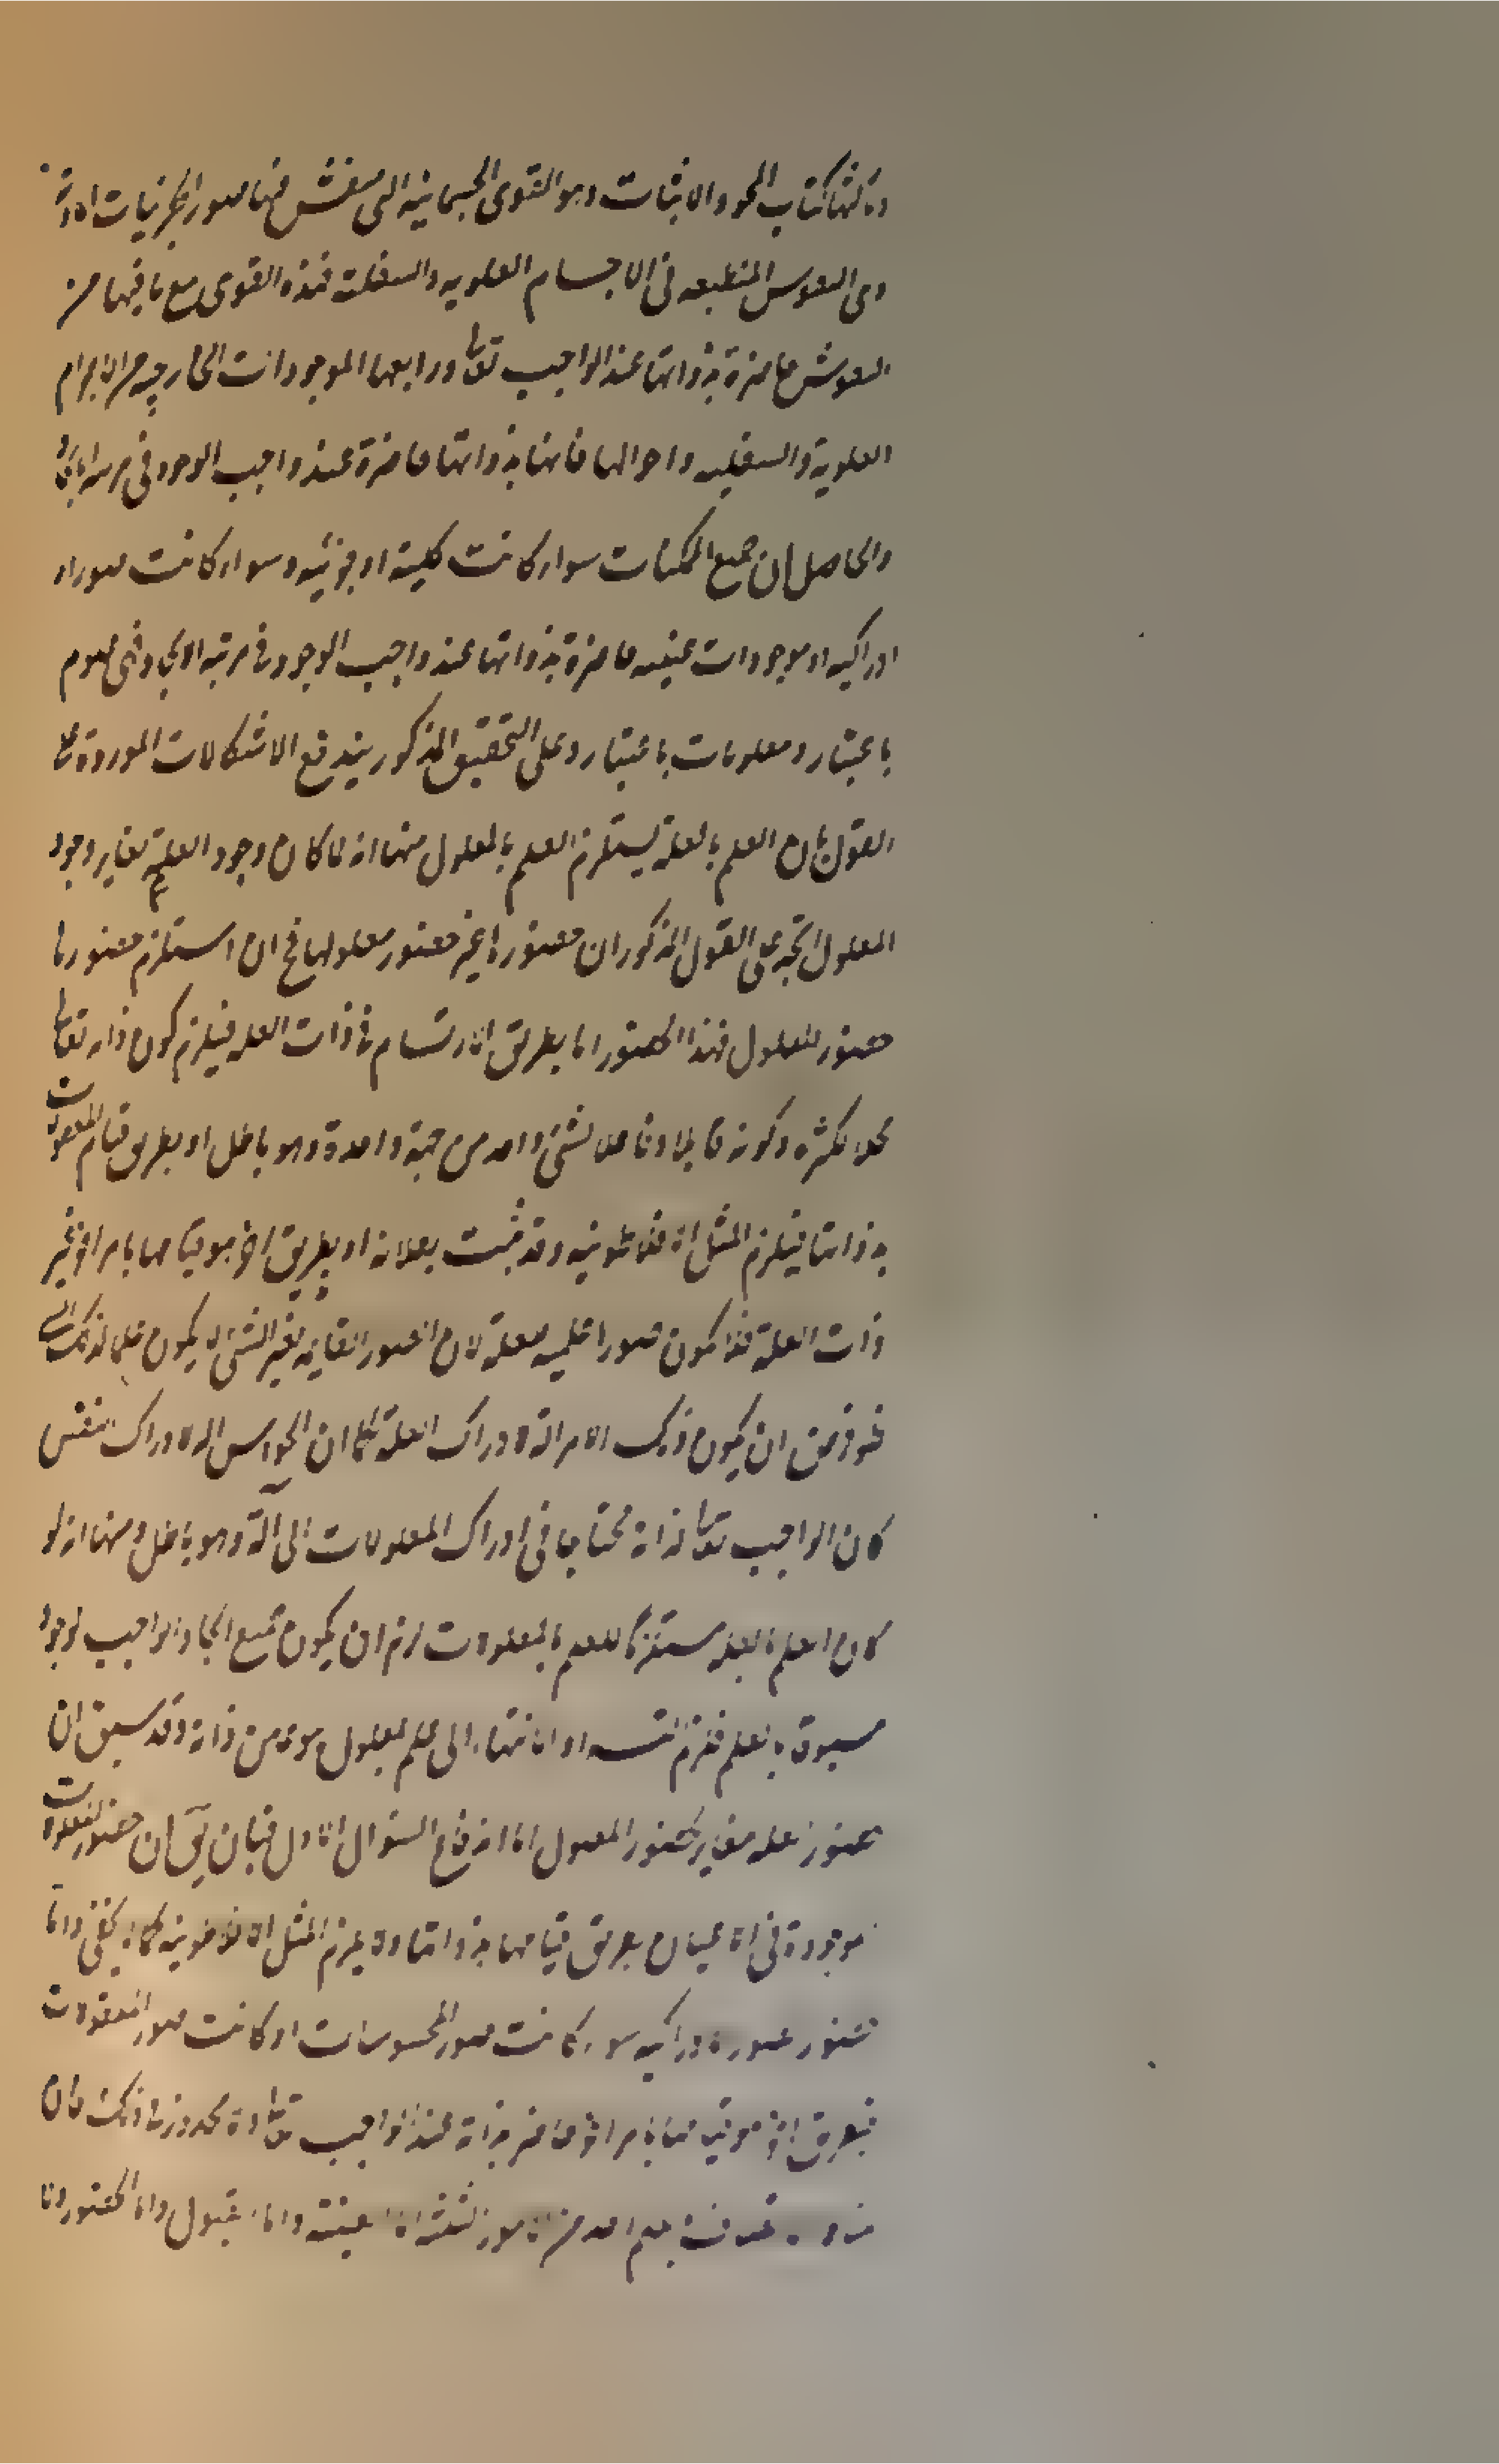 وثالثها كتاب المحو والاثبات وهو القوى الجسمانية التى ينتقش فيها صور الجزئيات المادية
وهى النفوس المنطبعه فى الاجسام العلويه والسفلية فهذه القوى مع ما فيها من
النقوش حاضرة بذواتها عند الواجب تعالى ورابعها الموجودات الخارجيه من الاجرام
العلوية والسفليه واحوالها فانها بذواتها حاضرة عند واجب الوجود فى مرتبه الايجاد
والحاصل ان جميع الممكنات سواء كانت كلية او جزئيه وسواء كانت صورا
ادراكيه او موجودات عينيه حاضرة بذواتها عند واجب الوجود فى مرتبه الايجاد فهى علوم
باعتبار ومعلومات باعتبار وعلى التحقيق المذكور يندفع الاشكالات الموردة على
القول بان العلم بالعلة يستلزم العلم بالمعلول منها انه لما كان وجود العلة مغاير وجود
المعلول اتجه على القول المذكور ان حضورها غير حضور معلولها فح ان استلزم حضورها
حضور المعلول فهذا الحضور اما بطريق الارتسام فى ذات العله فيلزم كون ذاته تعالى
محلا لكثره وكونه قابلا وفاعلا لشئ واحد من جهة واحدة وهو باطل او بطريق قيام المعلولات
بذواتها فيلزم المثل الافلاطونيه وقد ثبت بطلانه او بطريق اخر هو قيامها بامر اخر غير
ذات العلة فلا يكون صورا علميه للعلة لان الصور القايمه بغير الشئ لا يكون علما لذلك الشئ
ولو فرض ان يكون ذلك الامر الة لادراك العلة كما ان الحواس اله لادراك النفس
كان الواجب تعالى لذاته محتاجا فى ادراك المعلولات الى آلة وهو باطل ومنها انه لو
كان العلم بالعله مستلزما للعلم بالمعلولات لزم ان يكون جميع ايجاد الواجب لوجود
مسبوقا بالعلم فلزم التسه او الانتهاء الى علم لمعلول هو عين ذاته وقد سبق ان
حضور العله مغاير لحضور المعلول اما اندفاع السؤال الاول فبان يق ان حضور المعلولات
موجودة فى الاعيان بطريق قيامها بذواتها ولا يلزم المثل الافلاطونية كما لا يخفى واما
حضور صور ادراكيه سواء كانت صور المحسوسات او كانت صور المعقولات
فبطريق اخر هو قيامها بامر اخر حاضر بذاته عند الواجب تعالى ولا محذور فى ذلك فان
العلم احد من الامور الثلثه اما العينية واما القبول واما الحضور